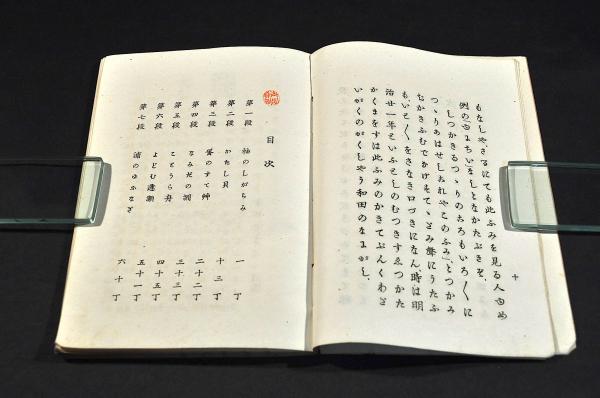 十
もなしや、さるにても此ふみを見る人ゆめ
例の「ゆまちい」なしとなかたぶきそ。
しつかきるつゞりのおろもいろ〳〵に
つゞりあはせしおれやこのふみ、とつかみ
かきふむでかけ
てゝどみ聲にうたふ
も、いそ〳〵をさなき口づきになん時は明
治廿一年といふとしのむつきすゑつかた
かくまをすは此ふみのかきてぶんくわざ
いがくのがくしやう和田のなまがし、
目次
第一段 袖のしがらみ 一丁
第二段 かたし貝 十三丁
第三段 蜑のすて艸 二十二丁
第四段 なみだの淵 三十三丁
第五段 ことうら舟 四十五丁
第六段 よどむ逢瀬 五十一丁
第七段 浦のゆふなぎ 六十丁